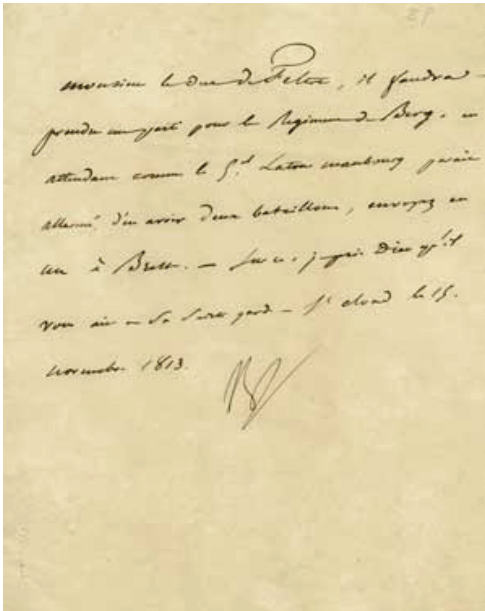 Monsieur le duc de Feltre, il faudra
prendre un parti pour le Régiment de Berg. en
attendant comme le Gal Latour maubourg parait
allarmé d'en avoir deux bataillons, envoyez en
un à . – Sur ce, je prie Dieu qu'il
vous ait en Sa Sainte garde – St cloud le 15.
novembre 1813.